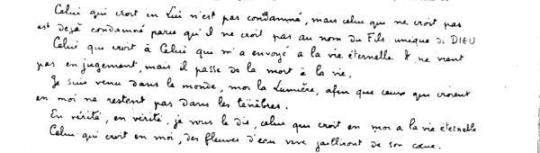 Celui qui croit en Lui n'est pas condamné, mais celui qui ne croit pas
est dejà condamné parce qu'il ne croit pas au nom du Fils unique de DIEU
Celui qui croit à Celui qui m'a envoyé a la vie éternelle. Il ne vient
pas en jugement, mais il passe de la mort à la vie.
Je suis venu dans le monde, moi la Lumière, afin que ceux qui croient
en moi ne restent pas dans les ténèbres.
En vérité, en vérité, je vous le dis, celui qui croit en moi a la vie éternelle
Celui qui croit en moi, des fleuves d'eau vive jailliront de son coeur.